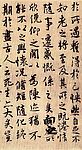 於所遇蹔得於己快然自足不
知老之將至及其所之既惓情
隨事遷感慨係之矣向之所
欣俛仰之間以為陳迹猶不
能不以之興懷況脩短隨化終
期於盡古人云死生亦大矣豈